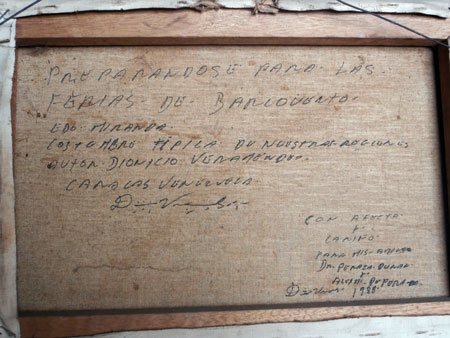 PREPARANDOSE PARA LAS
FERIAS DE BARLOVENTO.
EDO MIRANDA
COSTUMBRE TIPICA DE NUESTRAS REGIONES
AUTOR DIONYCIO VERAMENDEZ.
CARACAS VENEZUELA
CON AFECTO
Y
CARIÑO
PARA MIS AMIGOS
DR
Y
DE
1988